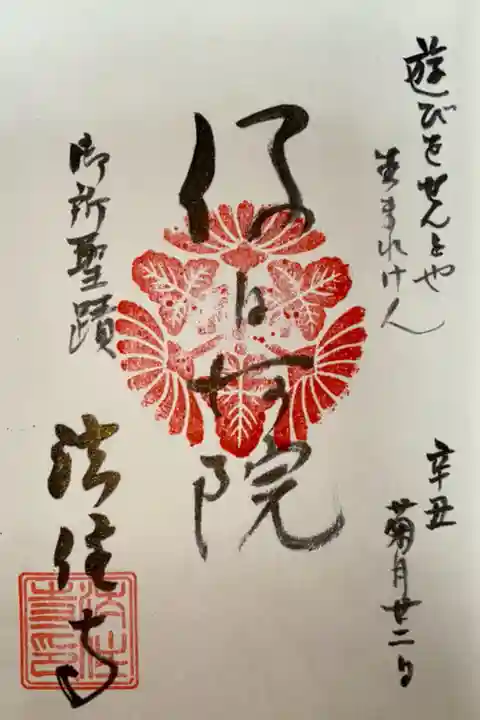 遊びをせんとや
生まれけん
辛丑
菊月廿二日
後白河院
御所聖蹟
法住寺
法住
寺印